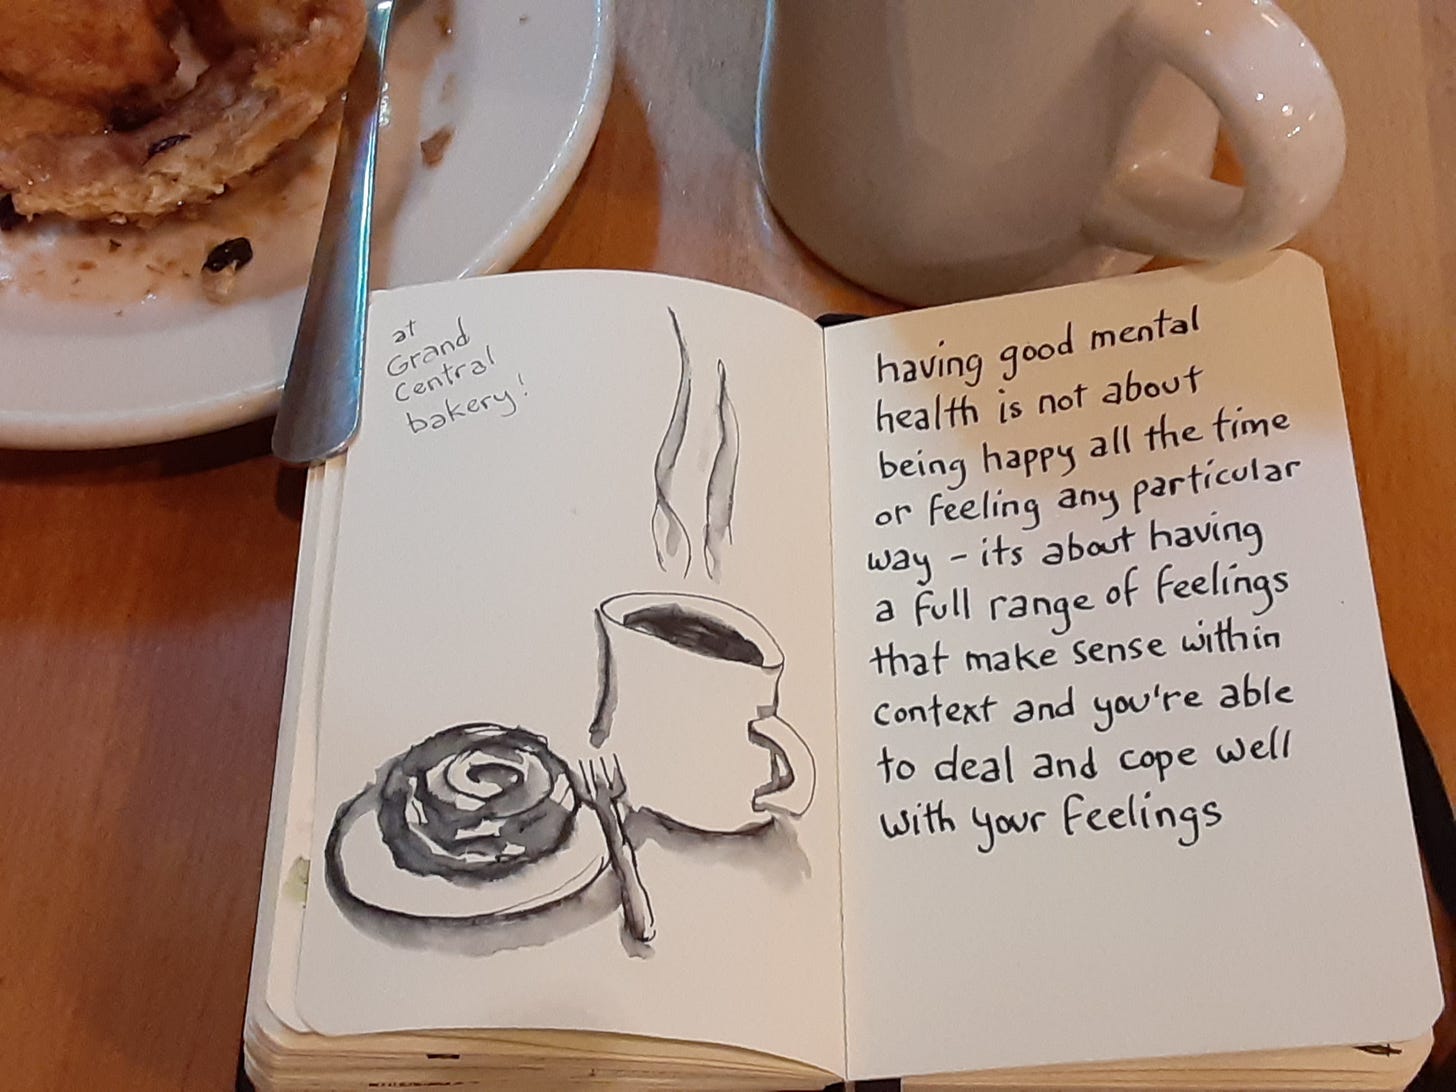 at
Grand
Central
bakery!
having good mental
health is not about
being happy all the time
or feeling any particular
way - its about having
a full range of feelings
that make sense within
context and you're able
to deal and cope well
with your feelings